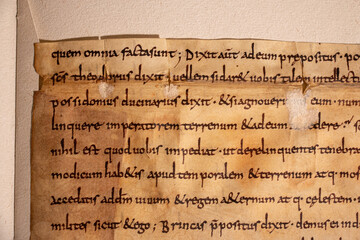 quem omnia facta sunt ; Dixit aut adeum prepositus · po
scs theodorus dixit · vellem sidar& vobis talem intellect
possidonius ducenarius dixit · & si agnouer cum · num
linquere imperatorem terrenum & adeum dere · 
nihil est quod vobis impediat · ut derelinquentes tenebra
modicum hab&is apud temporalem & terrenum at q:
accedatis addnm vivum & regem & aeternum at q: celestem ·
milites sicut & ego ; Brincas ppositus dixit · demus ei ind